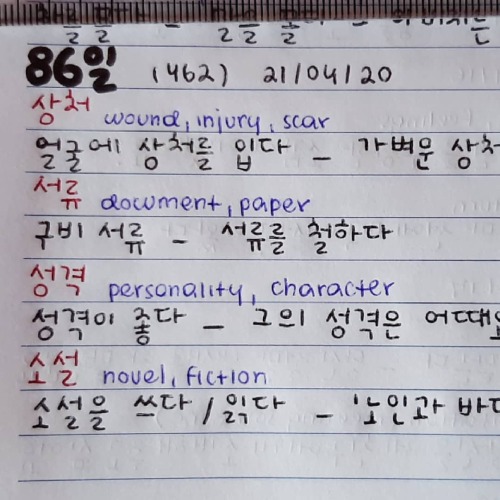 86일 (462) 21/04/20
상처 wound, injury, scar
얼굴에 상처를 입다 – 가벼운 상처
서류 document, paper
구비 서류 – 서류를 철하다
성격 personality, character
성격이 좋다 – 그의 성격은 어때
소설 novel, fiction
소설을 쓰다/읽다 –